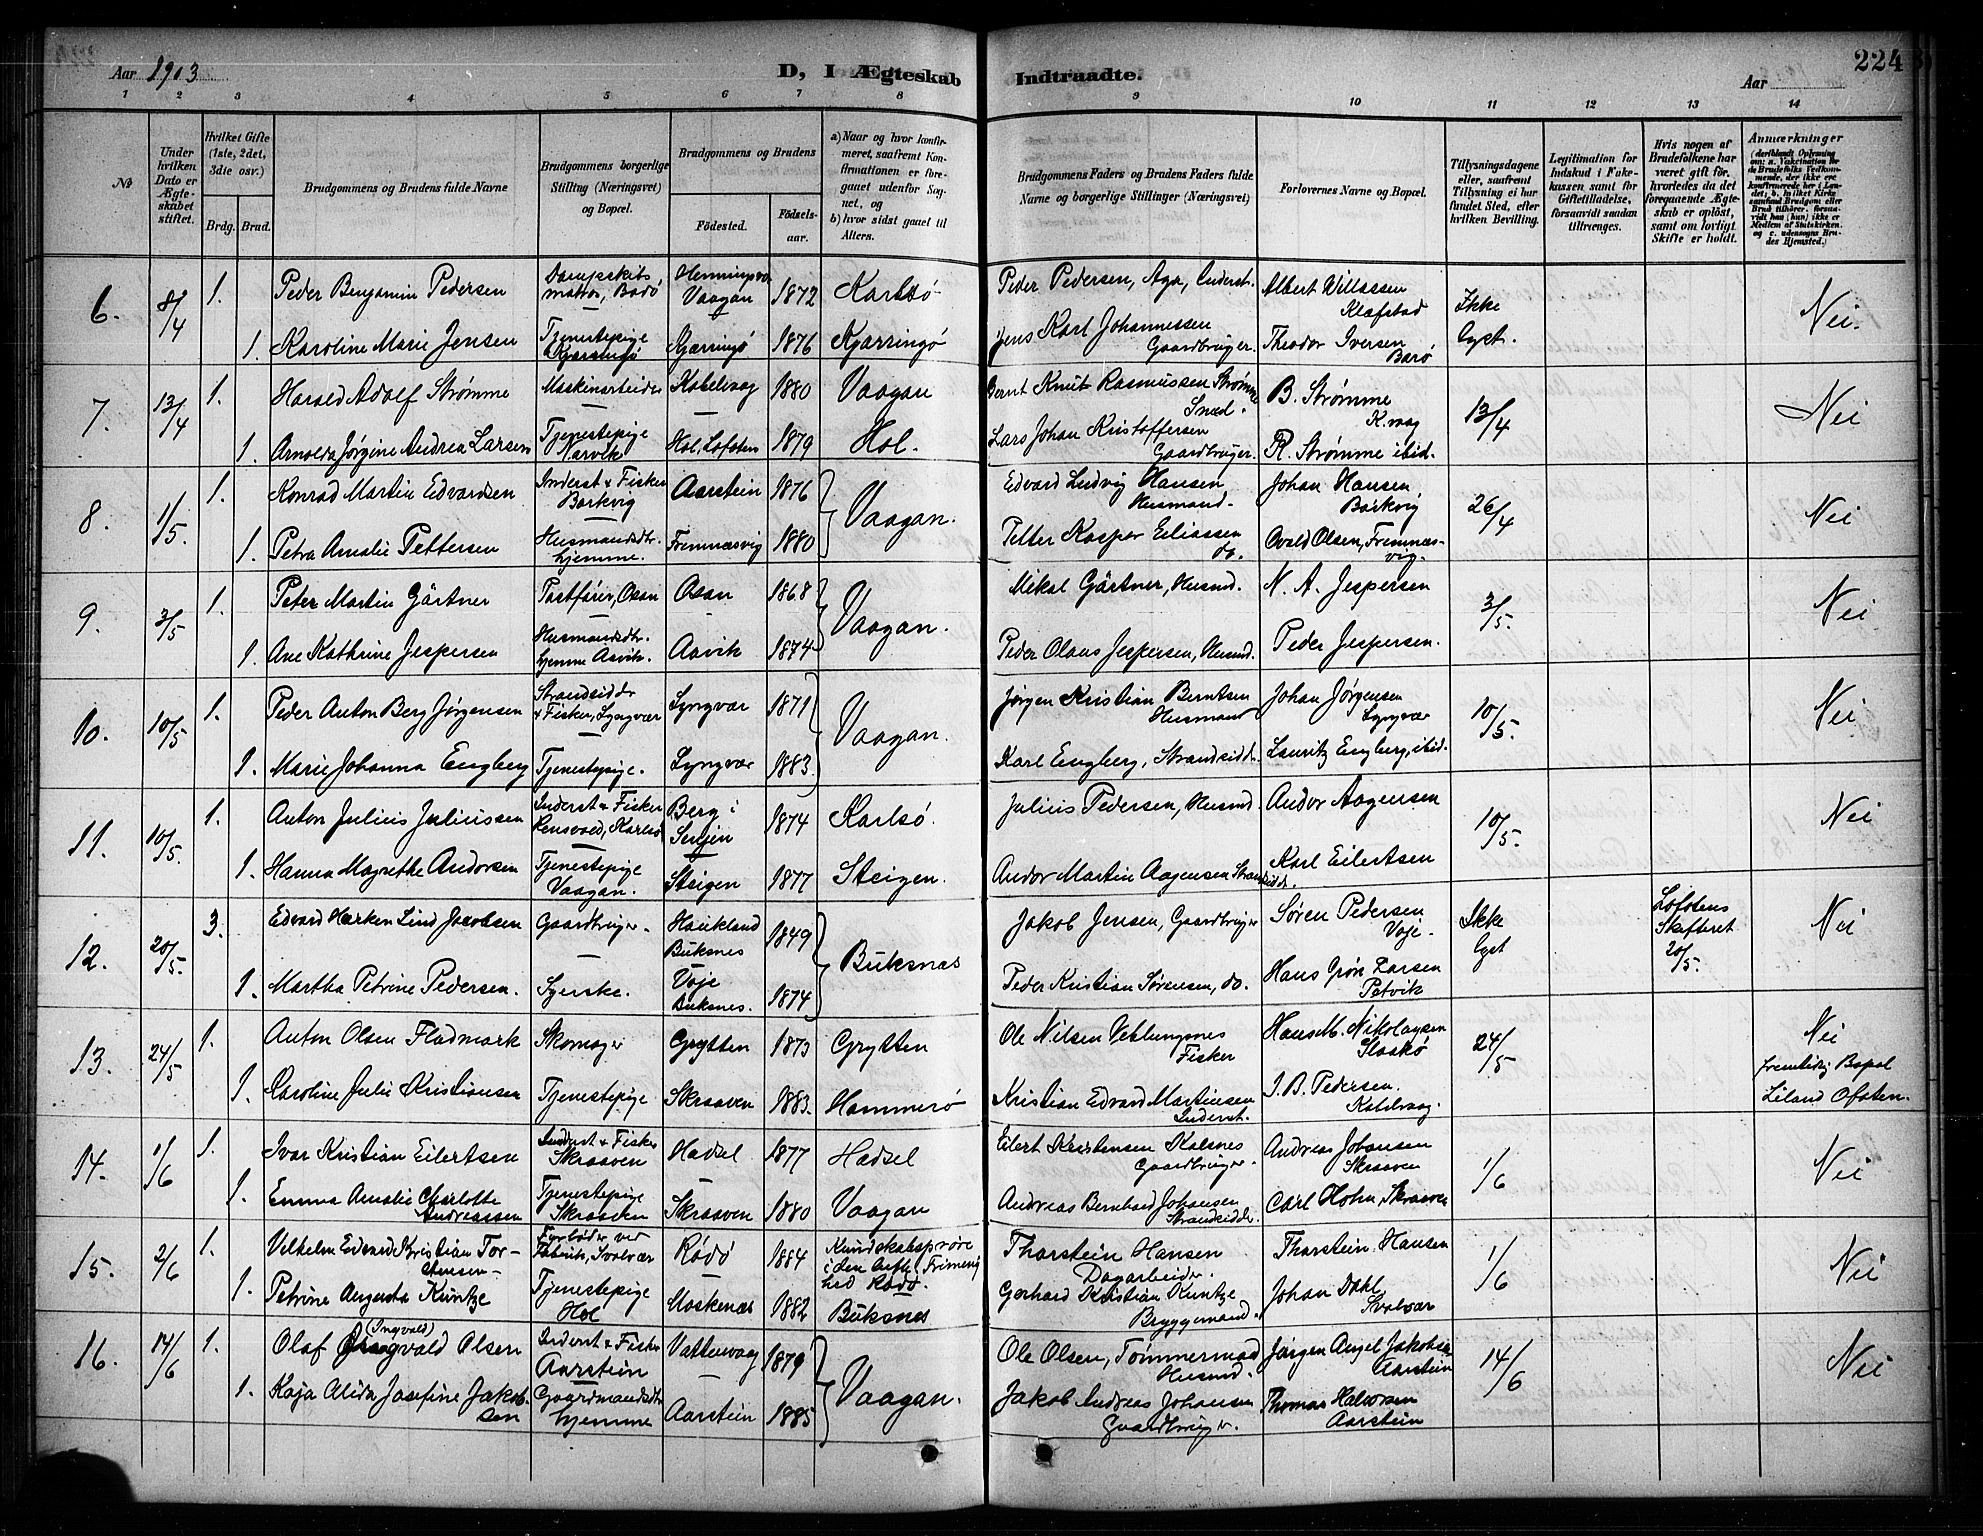 Aar 1903
D, I Ægteskab
Indtraadte.
Aar
224
1 2 3 4 5 6 7 8 9 10 11 12 13 14
No
Under hvilken Dato er Ægteskabet stiftet.
Hvilket Gifte (1ste, 2det, 3die osv.)
Brdg. Brud.
Brudgommens og Brudens fulde Navne
Brudgommens borgerlige Stilling (Næringsvei) og Bopæl.
Brudgommens og Brudens
Fødested.
Fødselsaar.
a) Naar og hvor konfirmeret, saafremt Konfirmationen er foregaaet udenfor Sognet, og
b) hvor sidst gaaet til Alters.
Brudgommens Faders og Brudens Faders fulde Navne og borgerlige Stillinger (Næringsvei)
Forlovernes Navne og Bopæl.
Tillysningsdagene eller, saafremt Tillysning ei har fundet Sted, efter hvilken Bevilling.
Legitimation for Indskud i Enkekassen samt for Giftetilladelse, forsaavidt saadan tiltrænges.
Hvis nogen af Brudefolkene har været gift før, hvorledes da det foregaaende Ægteskab er opløst, samt om lovligt Skifte er holdt.
Anmærkninger
6. 8/4 1. Peder Benjamin Pedersen Dampskibsmatros, Bodø Henningsvær Vaagan 1872 Karlsö Peder Pedersen, Aga, Inderst. Albert Willassen Klæfstad Ikke lyst. Nei.
1. Karoline Marie Jensen Tjenestepige Kjærringö Kjærringö 1876 Kjærringö Jens Karl Johannessen Gaardbruger. Theodor Iversen Barö
7. 13/4 1. Harald Adolf Strømme Maskinarbeider Kabelvaag 1880 Vaagan Bernt Knut Rasmussen Strømme Smed. B. Strømme K.vaag 13/4 Nei
1. Arnolda Jørgine Andrea Larsen Tjenestepige Narvik Hol, Lofoten 1879 Hol. Lars Johan Kristoffersen Gaardbruger. R. Strømme ibid.
8. 1/5 1. Konrad Martin Edvardsen Inderst & Fisker Barkvig Aarstein 1876 Vaagan. Edvard Ludvig Hansen Husmand. Johan Hansen, Barkvig 26/4 Nei
1. Petra Amalie Pettersen Husmandsdtr. hjemme. Fremnæsvig 1880 Petter Kasper Eliassen do. Ovald Olsen, Fremnæsvig.
9. 3/5 1. Peter Martin Gärtner Postfører, Osan Osan 1868 Vaagan. Mikal Gärtner, Husmd. N. A. Jespersen 3/5. Nei
1. Ane Kathrine Jespersen Husmandsdtr. hjemme Aavik. Aavik 1874 Peder Olaus Jespersen, Husmd. Peder Jespersen.
10. 10/5 1. Peder Anton Berg Jørgensen Strandsidder & Fisker, Lyngvær Lyngvær 1871 Vaagan. Jørgen Kristian Berntsen Husmand Johan Jørgensen Lyngvær 10/5. Nei
1. Marie Johanna Engberg Tjenestepige. Lyngvær 1883. Karl Engberg, Strandsidd. Lauritz Engberg, ibid.
11. 10/5. 1. Anton Julius Juliussen Inderst & Fisker Rensvold, Karlsö Berg i Senjen 1874 Karlsö. Julius Pedersen, Husmd Andor Aagensen 10/5. Nei
1. Hanna Magrethe Andorsen Tjenestepige Vaagan. Steigen 1877 Steigen. Andor Martin Aagensen Strandsidd. Karl Eilertsen
12. 20/5. 3. Edvard Hærken Lind Jacobsen Gaardbruger. Haukland Buksnes 1849 Buksnæs Jakob Jensen, Gaardbruger Søren Pedersen Voje. Ikke lyst Lofotens Skifteret 20/5. Nei
1. Martha Petrine Pedersen. Syerske. Voje Buksnes. 1874 Peder Kristian Sørensen, do. Hans Grön Larsen Petvik
13. 24/5 1. Anton Olsen Fladmark Skomager Grytten 1873 Grytten Ole Nilsen Veblungsnes Fisker Hans M. Nikolaysen 24/5 Nei
1. Karoline Julie Kristiansen Tjenestepige Skraaven 1883. Hammerö Kristian Edvard Martinsen Inderst. I. B. Pedersen. Kabelvaag. Fremtidig Bopæl Liland Ofoten.
14. 1/6 1. Ivar Kristian Eilertsen Inderst & Fisker Skraaven Hadsel 1877 Hadsel Eilert Kristensen Kalsnes Gaardbruger. Andreas Johansen Skraaven 1/6 Nei
1. Emma Amalie Charlotte Andreassen Tjenestepige Skraaven Skraaven 1880 Vaagan Andreas Bernhard Johansen Strandsidder. Carl Holm, Skraaven
15. 2/6 1. Vilhelm Edvard Kristian Torstensen Fyrbøder ved Fabrik, Svolvær Rödö 1884 Kundskabsprøve i den luth. Frimenighed Rödö. Thorstein Hansen Dagarbeider. Thorstein Hansen 1/6 Nei
1. Petrine Augusta Kuntze Tjenestepige Hol Moskenæs 1882 Buksnæs Gerhard Kristian Kuntze Bryggemand. Johan Dahl Svolvær
16. 14/6 1. Olaf (Ingvald) Olsen Inderst & Fisker Aarstein Vattervaag 1879 Vaagan. Ole Olsen, Tømmermand Husmd. Jørgen Angel Jakobsen Aarstein 14/6 Nei
1. Kaja Alida Josefine Jakobsen Gaardmandsdtr hjemme Aarstein 1885 Jakob Andreas Johansen Gaardbruger. Thomas Halvorsen Aarstein